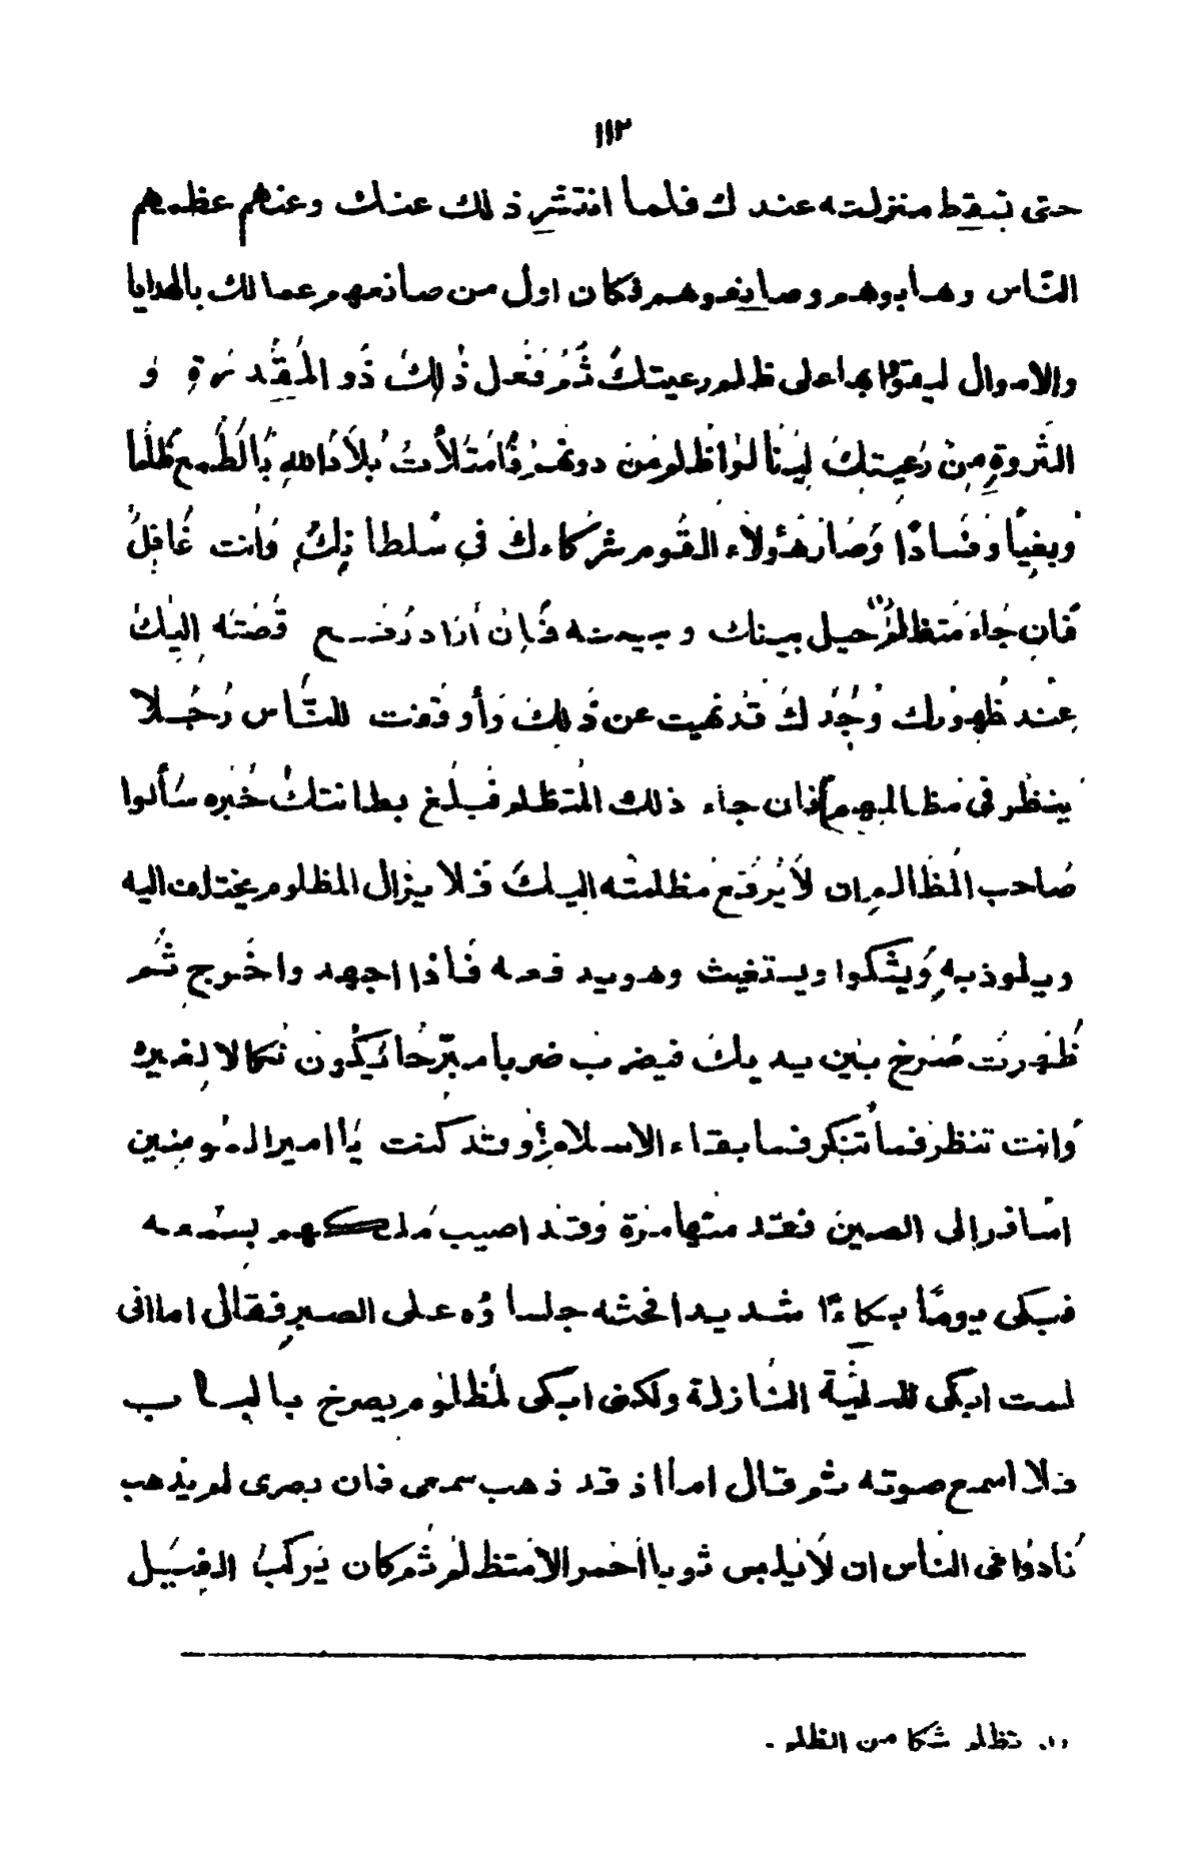 ١١٢
حتى تسقط منزلته عندك فلما انتشر ذلك عنك وعنهم عظمهم
النّاس وهابوهم وصانعوهم فكان اول من صانعهم عمالك بالهدايا
والاموال ليتقوّا بها على ظلم رعيتك ثُمَّ فَعَل ذٰلِكَ ذُو المَقْدرةِ وَ
الثَروةِ مِنْ رَعِيتِكَ لِيَنالوا ظلم مَن دونهم فَامتَلأت بِلاَدُ اللهِ بِالطَّمعِ ظُلْمًا
وبغيًا وفسادًا وَصَارَ هٰؤلاءِ القوم شركاءك في سُلطانِكَ وَأنت غَافِلٌ
فَانِ جَاءَ مُتظلمٌ(١) حيل بينك وبينه فَإِنْ أرَاد رَفع قِصّتَه اليكَ
عِنْد ظُهورك وَجَدَكَ قَد نهيت عن ذَلِكَ وَأوقفت للنَّاس رَجُلا
ينظر فى مظالمهم فان جاء ذلك المُتظلم فَبَلغ بطانتك خَبره سَألوا
صَاحب المظَالم ان لاَ يُرفَع مظلمته اليكَ فَلا يزال المظلوم يختلف اليه
ويلوذ به وَيَشكوا ويستغيث وهو يدفعه فَأذا اجهد واخرج ثُم
ظَهرتَ صَرخ بَين يديكَ فيضرب ضربا مبرّحًا يَكُون نَكالا لِغيره
وَانت تنظر فما تُنكر فما بقاء الاسلام أو قد كنت يَا امير المومنين
اسَافر إلى الصين فقدمتها مَرة وَقد اصيب مَلكهم بسَمعه
فبكى يومًا بكاءًا شديدا فحثه جلساؤه على الصبر فقال اما انى
لست ابكى للبلية النازلة ولكنى ابكى لمظلوم يصرخ بالباب
فلا اسمع صوته ثم قال اما اذ قد ذهب سمعى فان بصرى لم يذهب
نَادوا فى الناس ان لاَ يلبس ثوبا أحمر الا متظلم ثُم كان يَركبُ الفيل
١. تظلم شكا من الظلم -